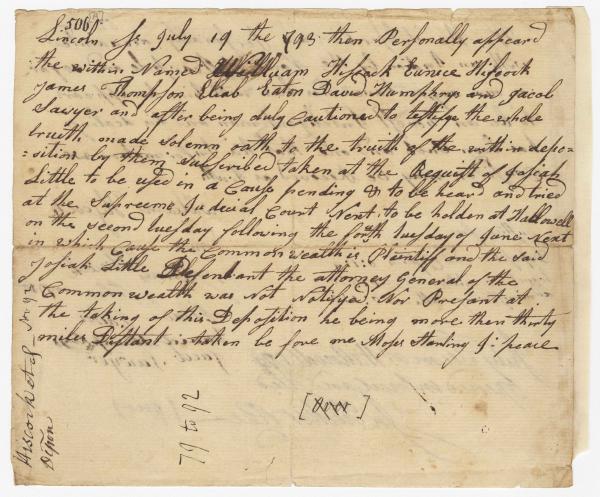 506
Lincoln Ss July 19 the 793 then Personally appeard
the within Named William Hiscock Eunice Hiscock
James Thompson Eliab Eaton David Humphrys and Jacob
Sawyer and after being duly Cautioned to testifye the whole
trueth made Solemn oath to the truth of the within depo=
=sition by them Subscribed taken at the Request of Josiah
Little to be used in a Cause pending & to be heard and tried
at the Supreme Judecial Court Next to be holden at Hallowell
on the second tuesday following the forth tuesday of June Next
in which Cause the Commonwealth is Plaintiff and the said
Josiah Little Defendant the attorney General of the
Commonwealth was Not Notifyed Nor Presant at
the taking of this Deposition he being more then thirty
miles Distant is taken be fore me Moses Starling Js peace
Hiscock et al
Depon
79 to 92